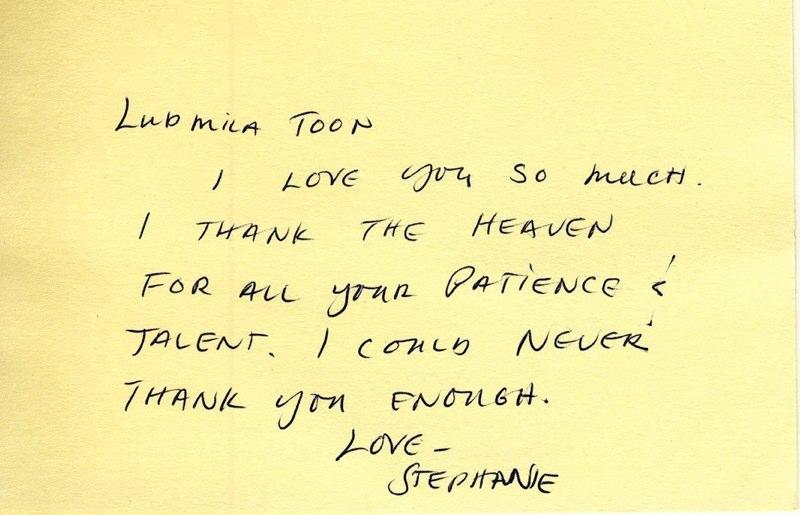 LUDMILA TOON
I LOVE you SO MUCH.
I THANK THE HEAVEN
FOR ALL your PATIENCE &
TALENT. I COULD NEVER
THANK you ENOUGH.
LOVE -
STEPHANIE